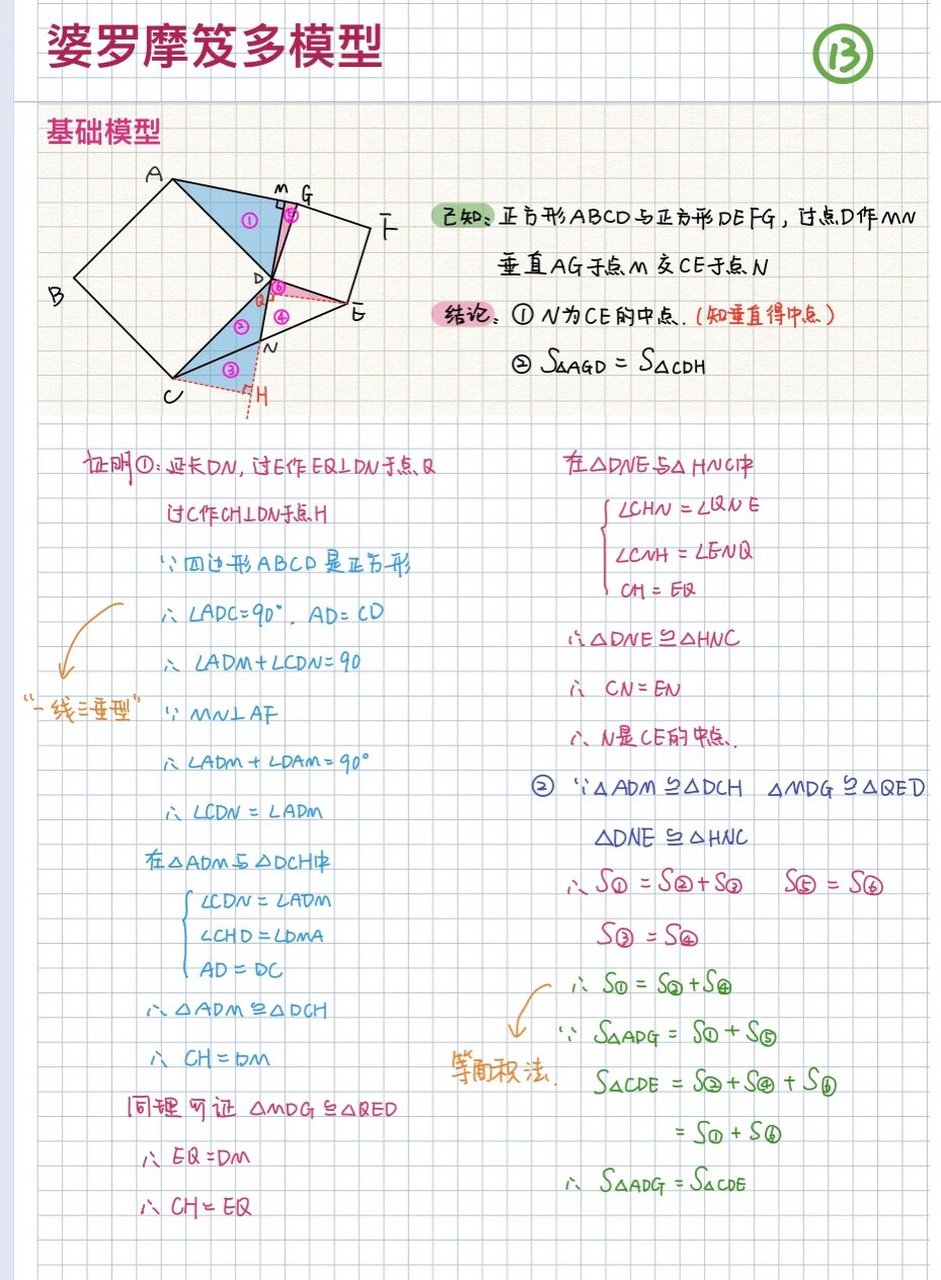 婆罗摩笈多模型
⑬
基础模型
A
M
G
F
①
⑤
D
⑥
B
Q
E
②
④
N
③
C
H
已知: 正方形ABCD与正方形DEFG, 过点D作MN
垂直AG于点M 交CE于点N
结论: ① N为CE的中点. (知垂直得中点)
② S△AGD = S△CDH
证明①: 延长DN, 过E作EQ⊥DN于点Q
过C作CH⊥DN于点H
∵ 四边形ABCD是正方形
∴ ∠ADC=90°. AD=CD
∴ ∠ADM+∠CDN=90
"一线三垂型"
∵ MN⊥AF
∴ ∠ADM+∠DAM=90°
∴ ∠CDN=∠ADM
在△ADM与△DCH中
∠CDN=∠ADM
∠CHD=∠DMA
AD=DC
∴ △ADM≌△DCH
∴ CH=DM
同理可证 △MDG≌△QED
∴ EQ=DM
∴ CH=EQ
在△DNE与△HNC中
∠CHN=∠QNE
∠CNH=∠ENQ
CH=EQ
∴ △DNE≌△HNC
∴ CN=EN
∴ N是CE的中点.
② ∵△ADM≌△DCH △MDG≌△QED
△DNE≌△HNC
∴ S①=S②+S③ S⑤=S⑥
S③=S④
∴ S①=S②+S④
等面积法.
∵ S△ADG=S①+S⑤
S△CDE=S②+S④+S⑥
=S①+S⑥
∴ S△ADG=S△CDE